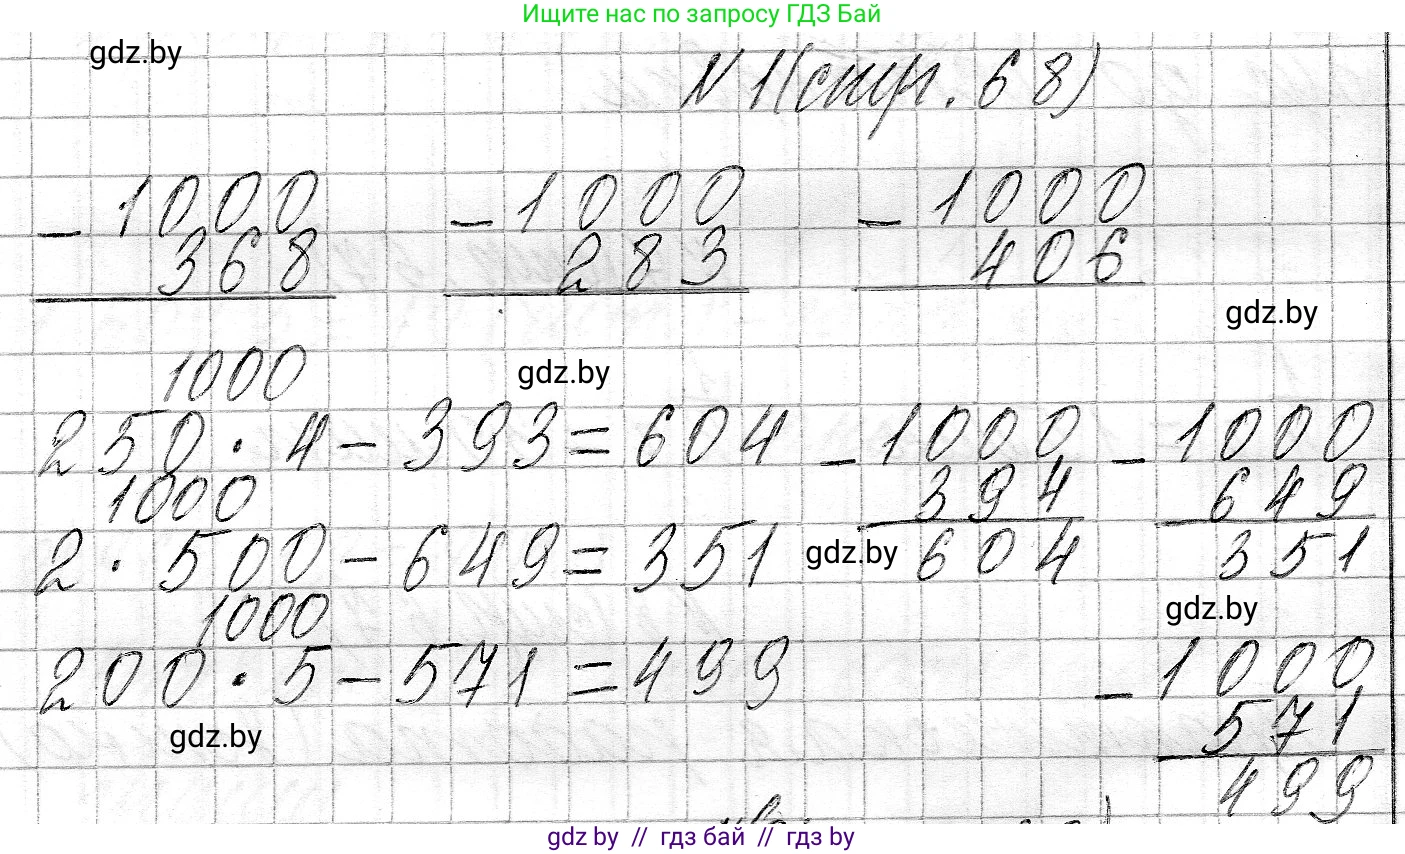 Ищите нас по запросу ГДЗ Бай
gdz.by
N 1 (стр. 68)
- 1000 - 1000 - 1000
368 283 406
gdz.by
1000
gdz.by
250 · 4 - 393 = 604 - 1000 - 1000
1000 394 649
2 · 500 - 649 = 351 gdz.by 604 351
1000 gdz.by
200 · 5 - 571 = 499 - 1000
gdz.by 571
499
gdz.by // гдз бай // гдз by